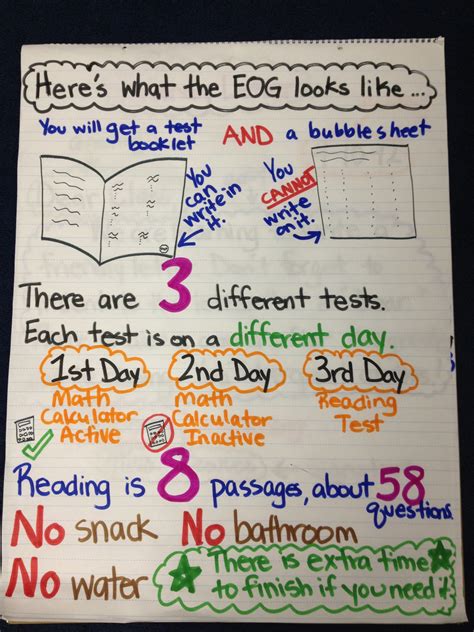 Here's what the EOG looks like...
You will get a test booklet AND a bubble sheet
You can write in it.
You CANNOT write on it.
There are 3 different tests.
Each test is on a different day.
1st Day 2nd Day 3rd Day
Math Calculator Active
math Calculator Inactive
Reading Test
Reading is 8 passages, about 58 questions
No snack No bathroom
No water
There is extra time to finish if you need it.